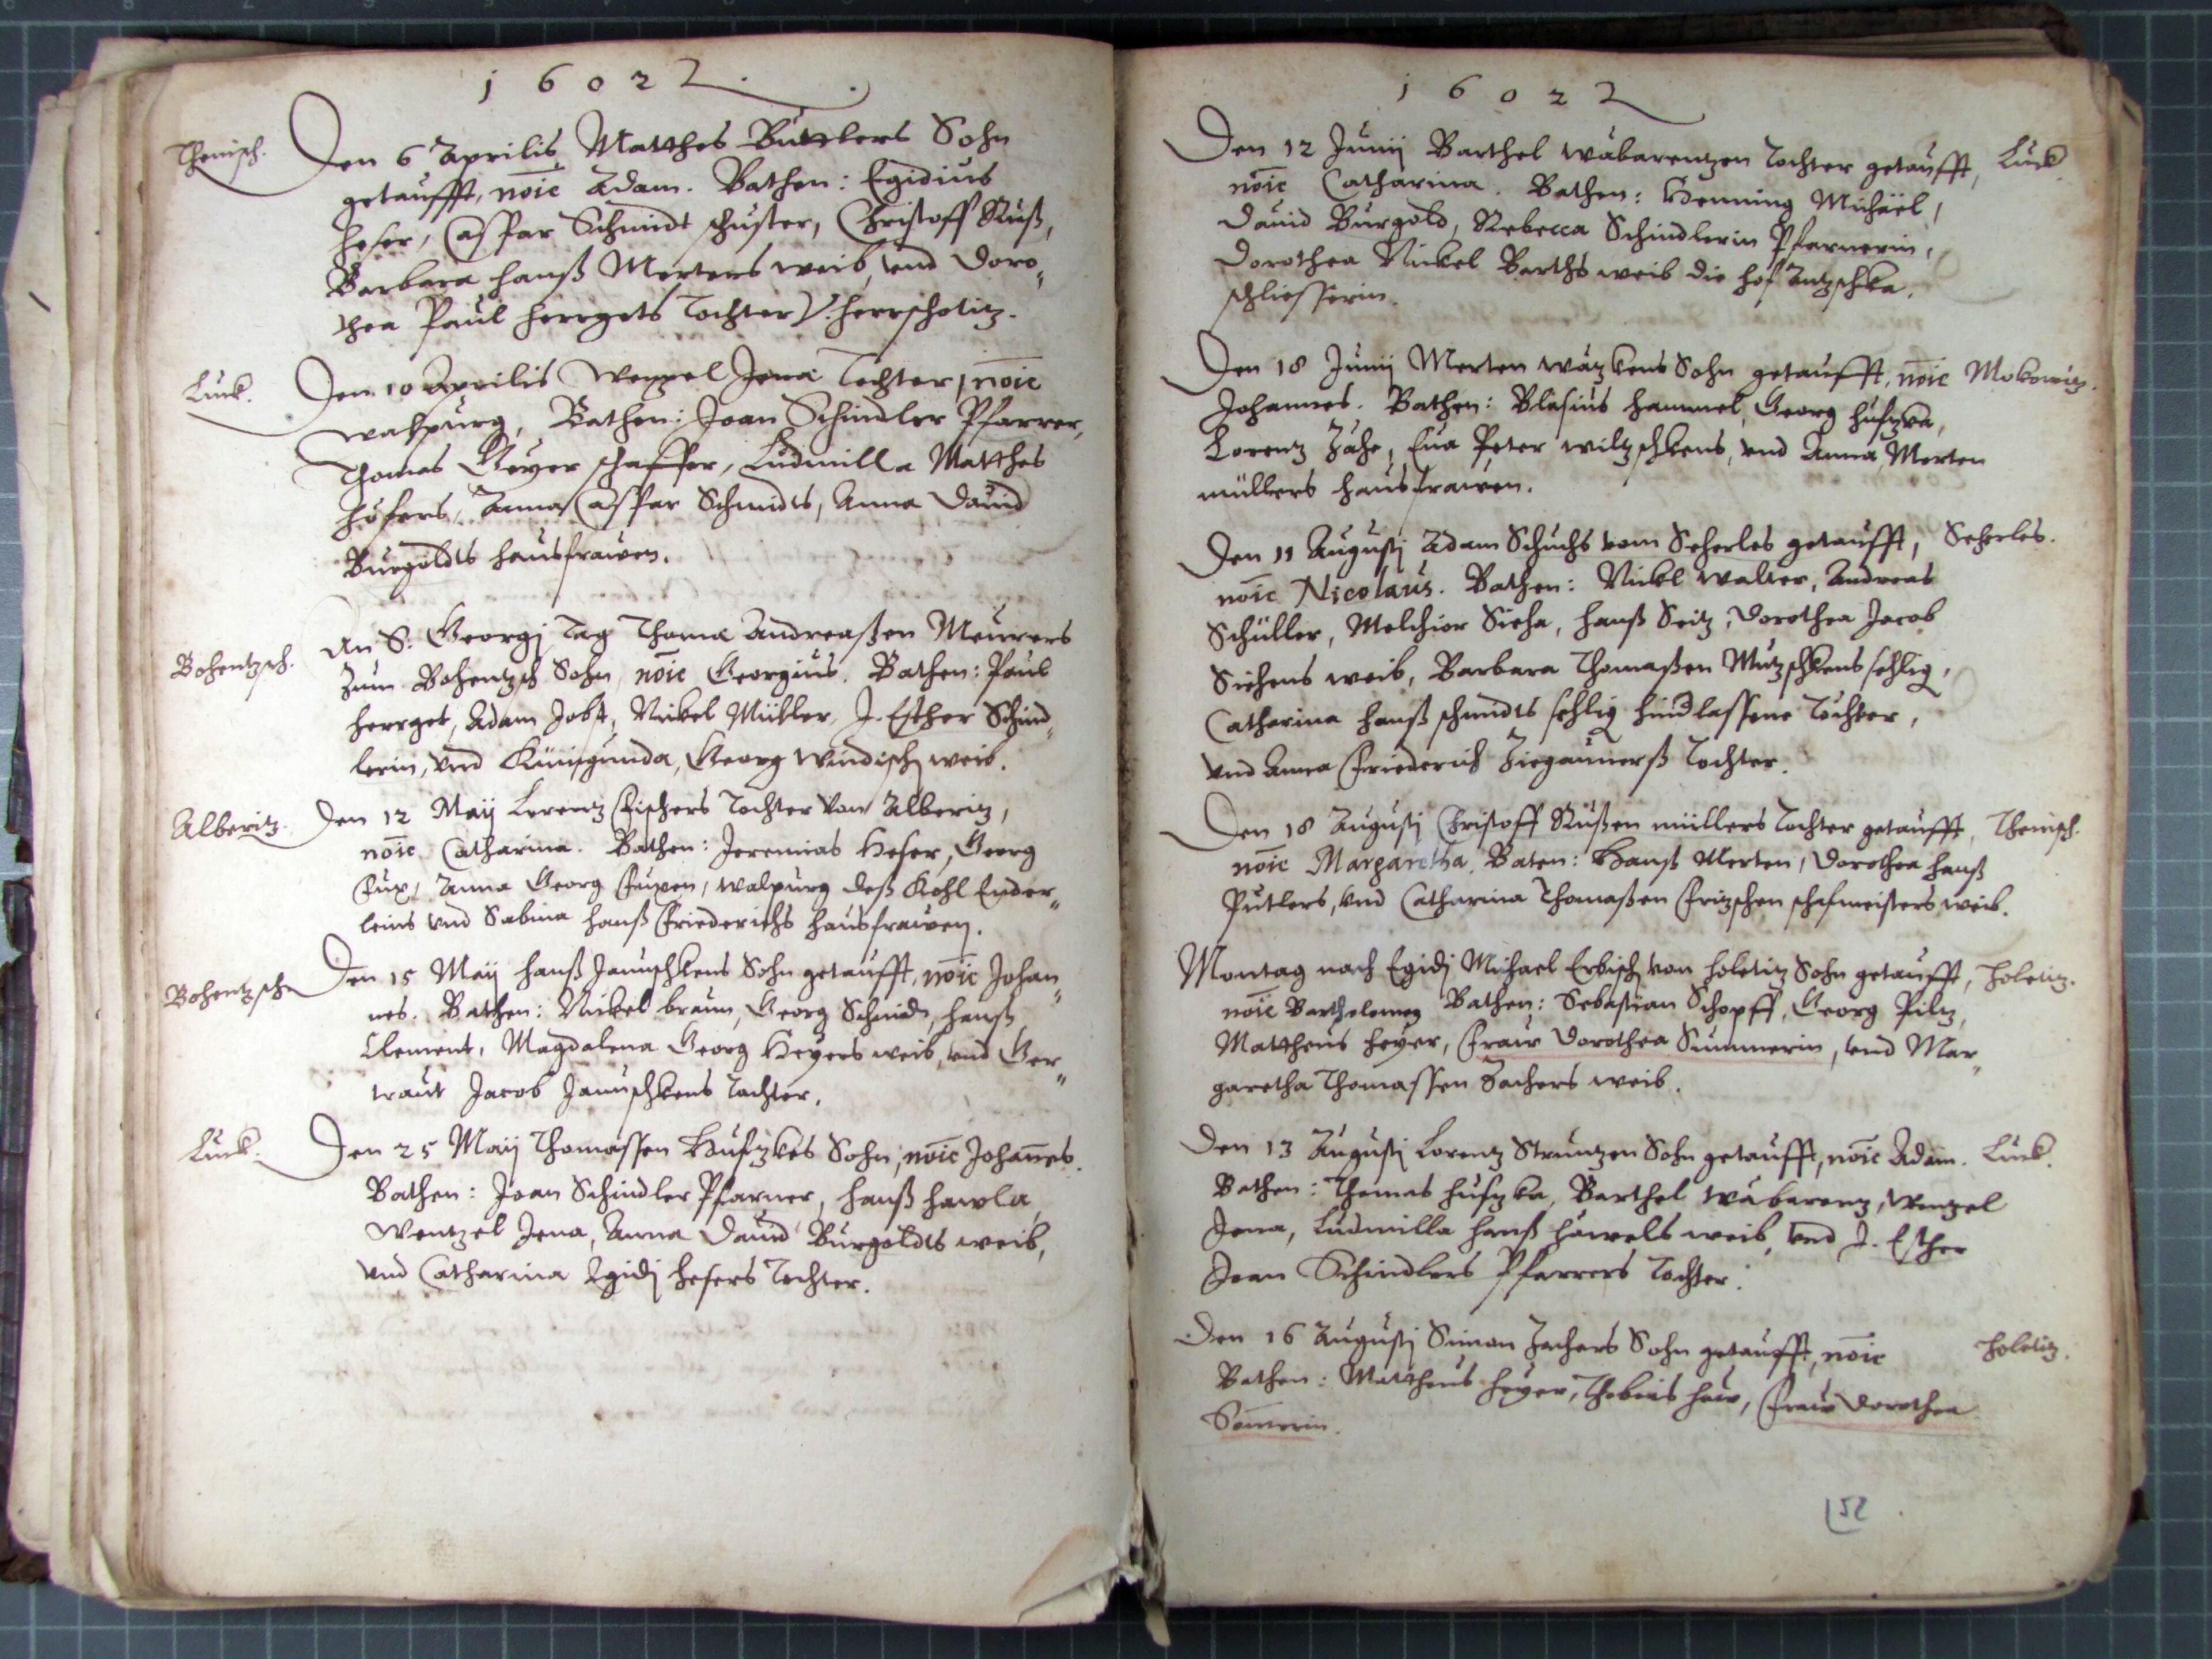 1602
Thenisch. Den 6 Aprilis Matthes Buttlers Sohn
getaufft, noie Adam. Bathen: Egidius
heser, Caspar Schmidt schuster, Christoff Ruß,
Barbara hanß Merters weib, vnd Doro„
thea Paul herrgets Tochter V. herrscholitz.
Luck. Den 10 Aprilis Wenzel Jena Tochter, noie
Walpurg, Bathen: Joan Schindler Pfarrer,
Thomas Geyer schaffer, Ludmilla Matthes
höfers, Anna Caspar Schmidts, Anna Dauid
Burgoldts hausfrawen.
Bohentzsch. An S. Georgj Tag Thoma Andreaßen Meurers
zum Bohentzsch Sohn, noie Georgius. Bathen: Paul
herrget, Adam Jobst, Nickel Müller, J. Esther Schind„
lerin, vnd Künigunda, Georg Windisch weib.
Alberitz. Den 12 Maij Lorentz Fischers Tochter von Alberitz,
noie Catharina. Bathen: Jeremias Heser, Georg
Fux, Anna Georg Fuxen, Walpurg deß Kohl Ender„
leins vnd Sabina hanß Friederichs hausfrawen.
Bohentzsch Den 15 Maij hanß Januschkens Sohn getaufft, noie Johan„
nes. Bathen: Nickel braun, Georg Schmidt, hanß
Clement, Magdalena Georg Heyers weib, vnd Ger„
traut Jacob Januschkens Tochter.
Luck. Den 25 Maij Thomassen Husykes Sohn, noie Johannes.
Bathen: Joan Schindler Pfarner, hanß hawla,
Wentzel Jena, Anna Dauid Burgoldts weib,
vnd Catharina Egidj hesers Tochter.
1602
Den 12 Junij Barthel Wabarentzen Tochter getaufft, Luck
noie Catharina. Bathen: Henning Michäel,
Dauid Burgold, Rebecca Schindlerin Pfarnerin,
Dorothea Nickel Barths weib die hof Antzschka,
schliesserin.
Den 18 Junij Merten Watzkens Sohn getaufft, noie Mokowitz.
Johannes. Bathen: Blasius hammel, Georg husyka,
Lorentz Zähe, Eua Peter wiltzschkens, vnd Anna Merten
müllers hausfrawen.
Den 11 Augustj Adam Schuchs vom Seherles getaufft, Seherles.
noie Nicolaus. Bathen: Nickl Walter, Andreas
Schüller, Melchior Sieha, hanß Seitz, Dorothea Jacob
Siehens weib, Barbara Thomaßen Mutzschkens sehlig,
Catharina hanß schmidts sehlig hindlassene Tochter,
vnd Anna Friederich Ziegaunerß Tochter.
Den 18 Augustj Christoff Rußen müllers Tochter getaufft, Thenisch.
noie Margaretha. Baten: Hanß Merten, Dorothea hanß
Putlers, vnd Catharina Thomaßen Fritzschen schafmeisters weib.
Montag nach Egidj Michael Erbisch von holetitz Sohn getaufft, holetitz.
noie Bartholemeg Bathen: Sebastian Schopff, Georg Piltz,
Mattheus heyer, Fraw Dorothea Summerin, vnd Mar„
garetha Thomassen Zachers weib.
Den 13 Augustj Lorentz Struntzen Sohn getaufft, noie Adam. Luck.
Bathen: Thomas husyka, Barthel Wabarentz, Wentzel
Jena, Ludmilla hanß hawels weib, vnd J. Esther
Joan Schindlers Pfarrers Tochter.
Den 16 Augustj Simon Zachers Sohn getaufft, noie holetitz.
Bathen: Mattheus heyer, Thobias haw, Fraw Dorothea
Somerin.
52